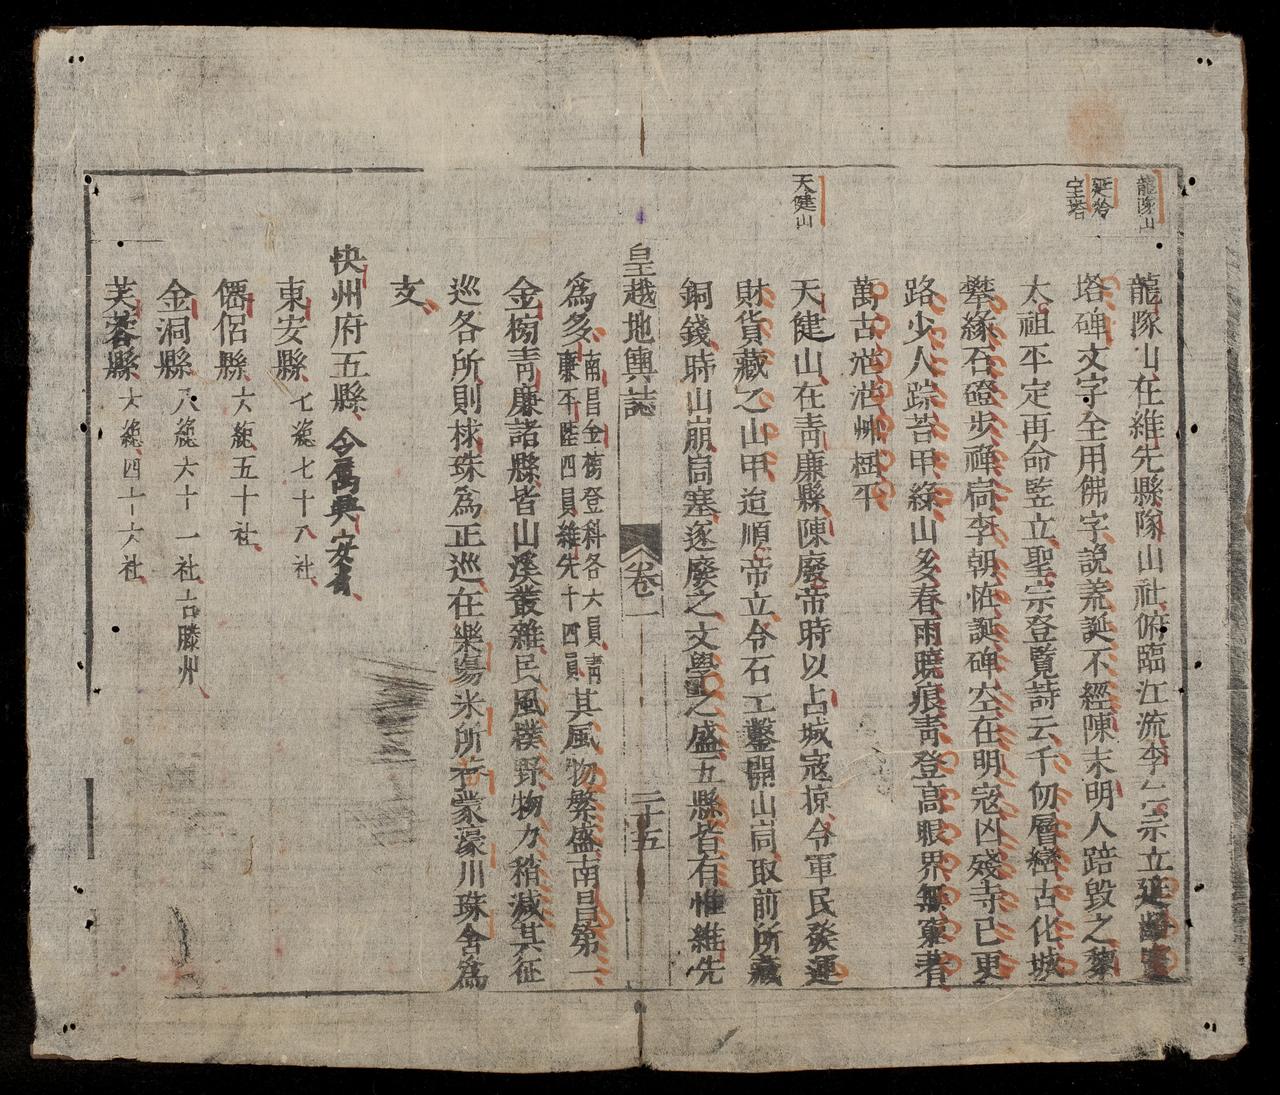 龍隊山
延齡
宝塔
龍隊山在維先縣隊山社俯臨江流李仁宗立延齡宝
塔碑文字全用佛字說荒誕不經陳末明人踣毀之黎
太祖平定再命監立聖宗登覽詩云千仞層巒古化城
攀緣石磴步禪扃李朝恠誕碑空在明寇凶殘寺已更
路少人踪苔甲綠山多春雨曉痕靑登高眼界無窮著
萬古茫茫艸樹平
天健山
天健山在靑廉縣陳廢帝時以占城寇掠令軍民發運
財貨藏之山甲迨順帝立令石工鑿開山峝取前所藏
銅錢時山崩峝塞遂廢之文學之盛五縣皆有惟維先
皇越地輿誌
卷一
二十五
爲多南昌金榜登科各六員靑
廉平陸四員維先十四員其風物繁盛南昌第一
金榜靑廉諸縣皆山溪叢雜民風樸野物力稍減其征
巡各所則梂珠爲正巡在樂塲米所香蒙濠川珠舍爲
支
快州府五縣今屬興安省
東安縣七總七十八社
僊侶縣六總五十社
金洞縣八總六十一社古滕州
芙蓉縣六總四十六社